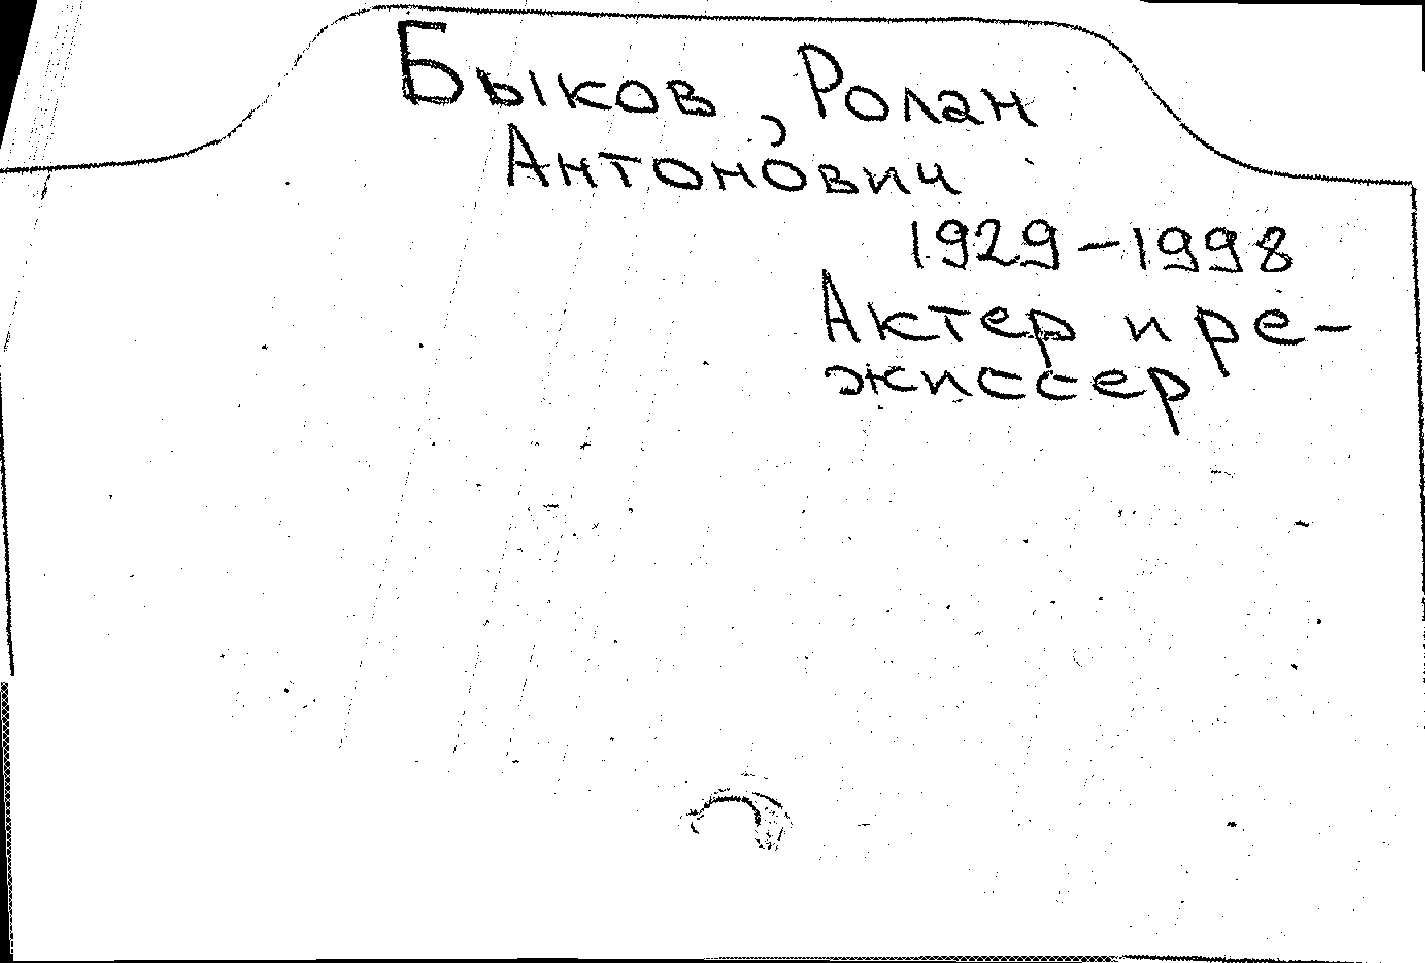 Быков, Ролан
Антонович
1929-1998
Актер и ре-
жиссер